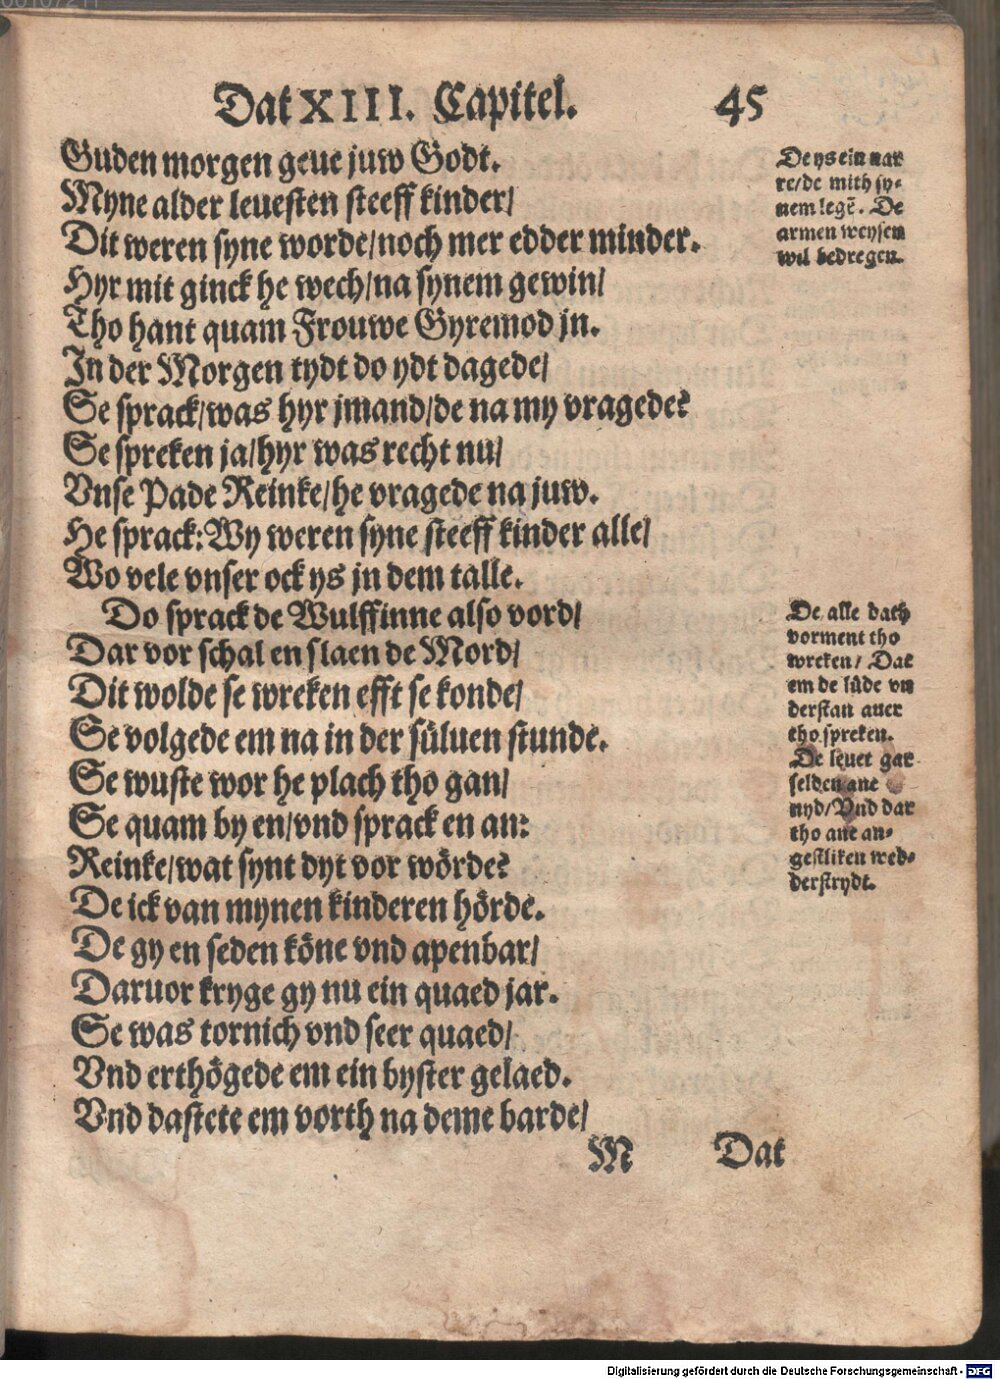 Dat XIII. Capitel. 45
Guden morgen geue juw Godt.
Myne alder leuesten steeff kinder/
Dit weren syne worde/noch mer edder minder.
Hyr mit ginck he wech/na synem gewin/
Tho hant quam Frouwe Gyremod jn.
In der Morgen tydt do ydt dagede/
Se sprack/was hyr jmand/de na my vragede?
Se spreken ja/hyr was recht nu/
Vnse Pade Reinke/he vragede na juw.
He sprack: Wy weren syne steeff kinder alle/
Wo vele vnser ock ys jn dem talle.
Do sprack de Wulffinne also vord/
Dar vor schal en slaen de Mord/
Dit wolde se wreken efft se konde/
Se volgede em na in der süluen stunde.
Se wuste wor he plach tho gan/
Se quam by en/vnd sprack en an:
Reinke/wat synt dyt vor wörde?
De ick van mynen kinderen hörde.
De gy en seden köne vnd apenbar/
Daruor kryge gy nu ein quaed jar.
Se was tornich vnd seer quaed/
Vnd erthögede em ein byster gelaed.
Vnd dastete em vorth na deme barde/
M Dat
De ys ein nar
re/de mith sy-
nem legē. De
armen weysen
wil bedregen.
De alle dath
vorment tho
wreken/ Dat
em de lüde vn
derstan auer
tho spreken.
De leuet gar
selden ane
nyd/Vnd dar
tho ane an-
gestliken wed-
derstrydt.
Digitalisierung gefördert durch die Deutsche Forschungsgemeinschaft - DFG